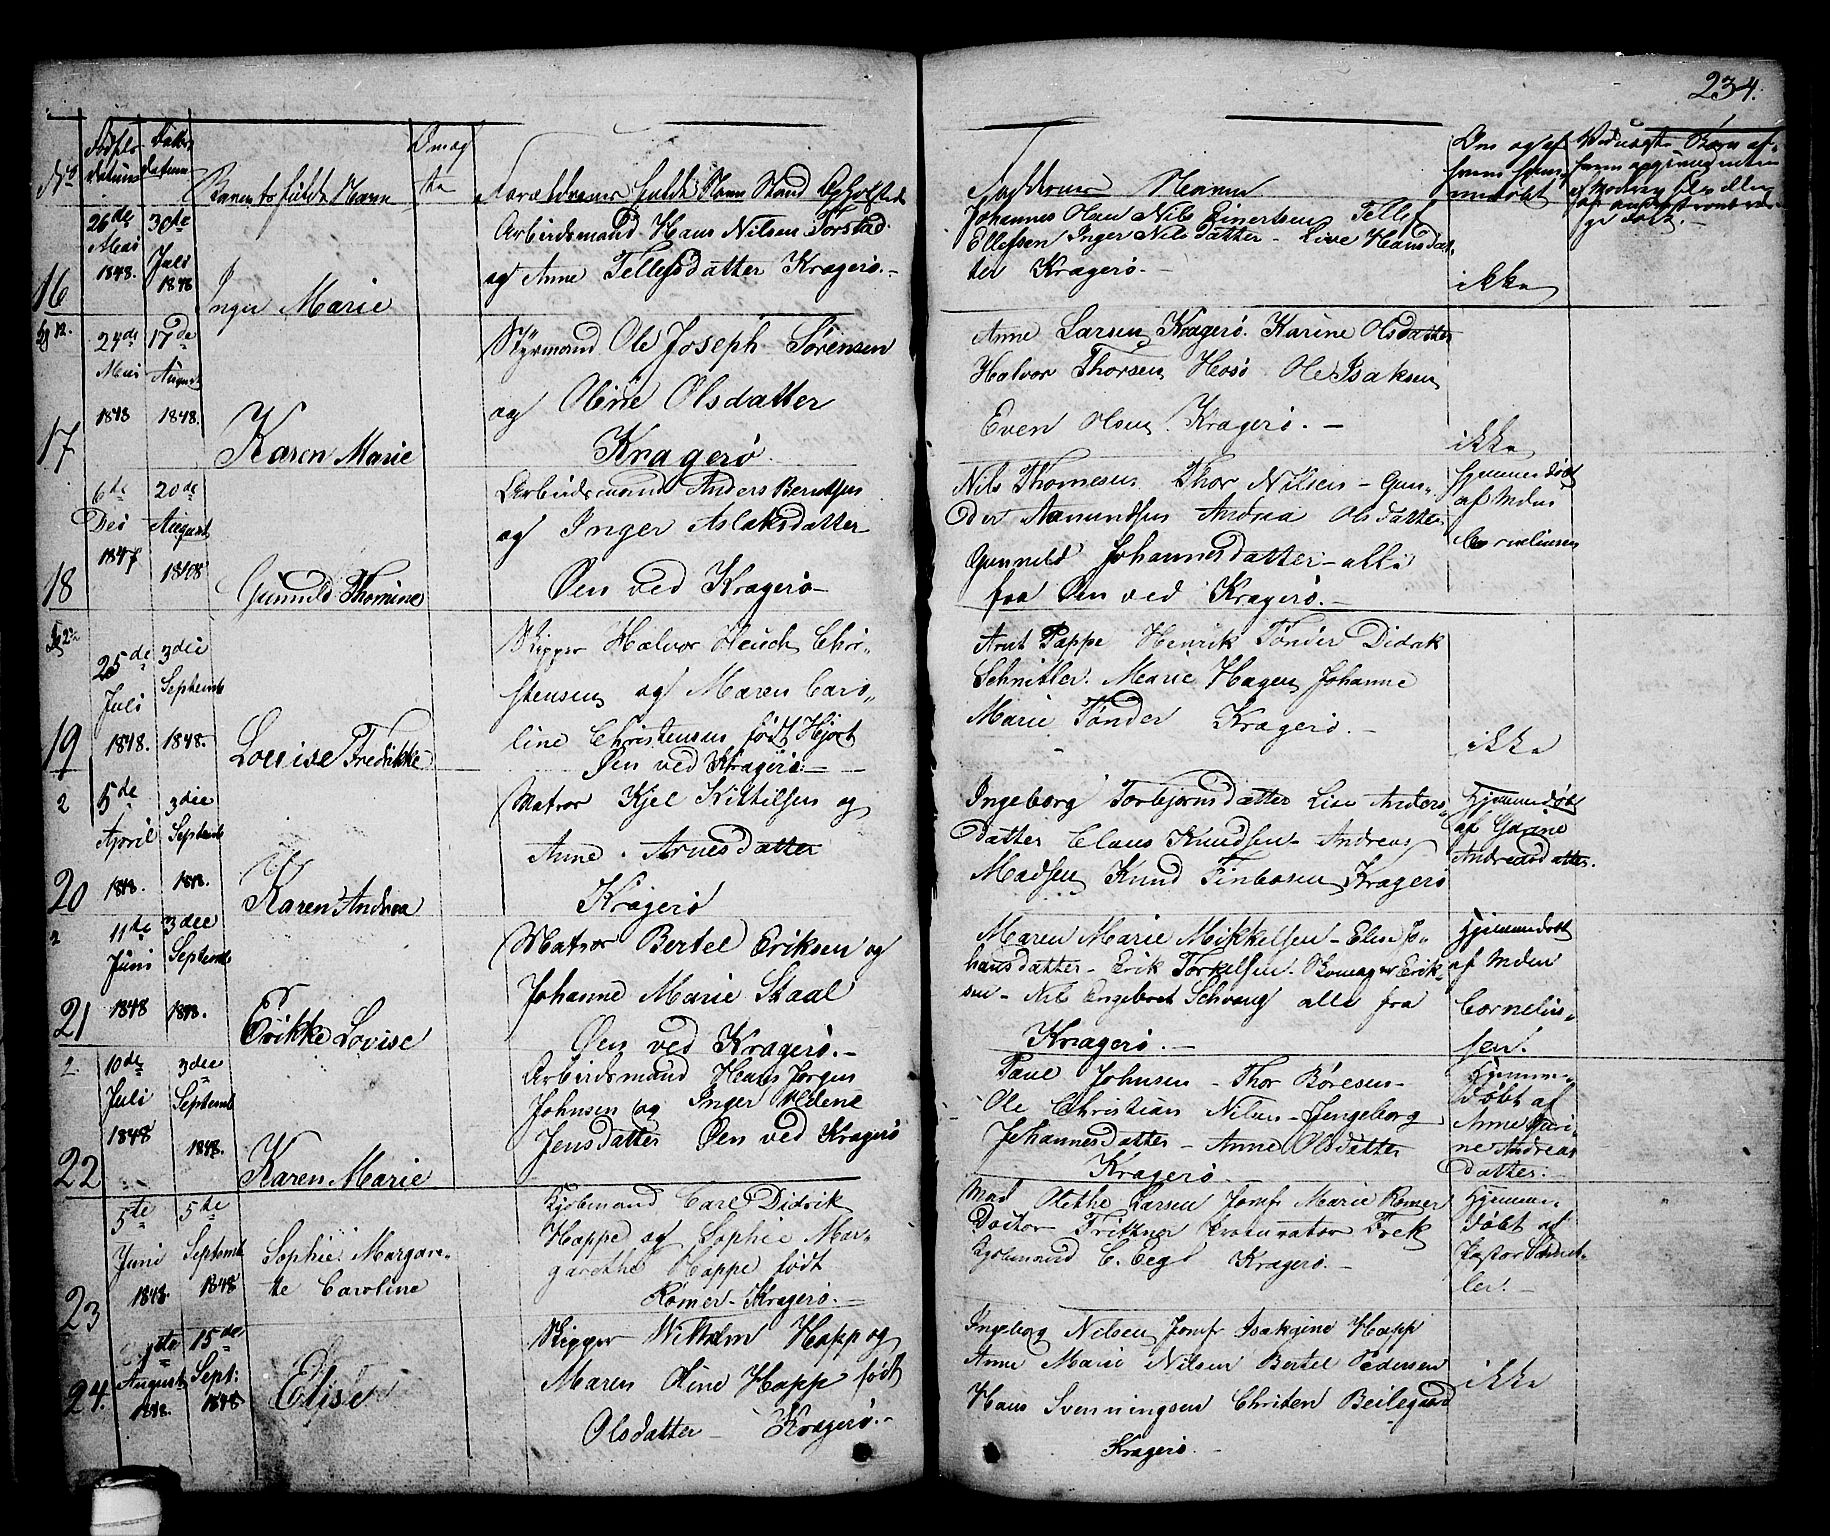 234.
No
Fødsels datum
Daabs datum
Barnets fulde Navn
Om ægte
Forældrenes fulde Navn Stand og Opholdsted
Faddernes Navne
Om og af hvem hjemmedøbt
16
26de Mai 1848.
30de Juli 1848
Inger Marie
Arbeidsmand Hans Nilsen Torstad
og Anne Tellefsdatter Kragerø.-
Johannes Olsen Nils Einertsen Tellef
Ellefsen Inger Nilsdatter - Live Hansdat-
ter Kragerø.-
ikke
17
24de Mai 1848
17de August 1848.
Karen Marie
Styrmand Ole Joseph Sørensen
og Oline Olsdatter
Kragerø.
Anne Larsen Kragerø. Karine Olsdatter
Halvor Thorsen Ole Isaksen
Even Olsen Kragerø.-
ikke
18
6te Des 1847
20de August 1848
Gunnild Thomine
Arbeidsmand Anders Berntsen
og Inger Aslaksdatter
Øen ved Kragerø-
Nils Thomesen Thor Nilsen - Gun-
der Aamundsen Andrea Olsdatter
Gunnild Johannesdatter - alle
fra Øen ved Kragerø.-
Hjemmedøbt
af
Corneliusen
19
25de Juli 1848.
3die Septemb 1848.
Louise Fredrikke
Skipper Halvor Heuch Chri-
stensen og Maren Caro-
line Christensen født Hjort
Øen ved Kragerø.-
Arnt Pappe Henrik Tønder Didrik
Schnitler. Marie Hagen Johanne
Marie Tønder Kragerø.-
ikke
20
5de April 1848.
3die Septemb 1848.
Karen Andrea
Matros Kjel Kittilsen og
Anne Arnesdatter
Kragerø
Ingeborg Torbjørnsdatter Lise Anders-
datter Claus Knudsen - Andreas
Madsen Knud Finbosen Kragerø
Hjemmedøbt
af
Andreasdatter.
21
11te Juni 1848
3die Septemb 1848.
Erikke Lovise
Matros Bertel Eriksen og
Johanne Marie Skaal
Øen ved Kragerø.-
Maren Marie Mikkelsen - Elise Jo-
hansdatter - Erik Torkelsen - Erik-
sen - Nils Engebret Schvang alle fra
Kragerø.-
Hjemmedøbt
af
Cornelius-
sen.
22
10de Juli 1848
3die Septemb 1848.
Karen Marie
Arbeidsmand Hans Jørgen
Johnsen og Inger Helene
Jensdatter Øen ved Kragerø
Paul Johnsen - Thor Børesen -
Ole Christian Nilsen - Jengeborg
Johannesdatter - Anne Olsdatter
Kragerø.
Hjemme-
døbt af
Anne Kari-
ne Andreas
datter.
23
5te Juni 1848
5te Septemb 1848
Sophie Margare-
te Caroline
Kjøbmand Carl Didrik
Happe og Sophie Mar-
garethe Happe født
Rømer - Kragerø.-
Mad Olethe Larsen Jomf Marie Rømer
Doctor Frithner Procurator
Kjøbmand C. Kragerø.-
Hjemme-
døbt af
Pastor Schnit-
ler.-
24.
August 1848.
15de Sept: 1848
Elise
Skipper Wilhelm Happ og
Maren Oline Happ født
Olsdatter - Kragerø.-
Ingeborg Nilsen Jomfr Happ
Anne Marie Nilsen Bertel Pedersen
Hans Svenningsen Christen Beilegaard
Kragerø.-
ikke